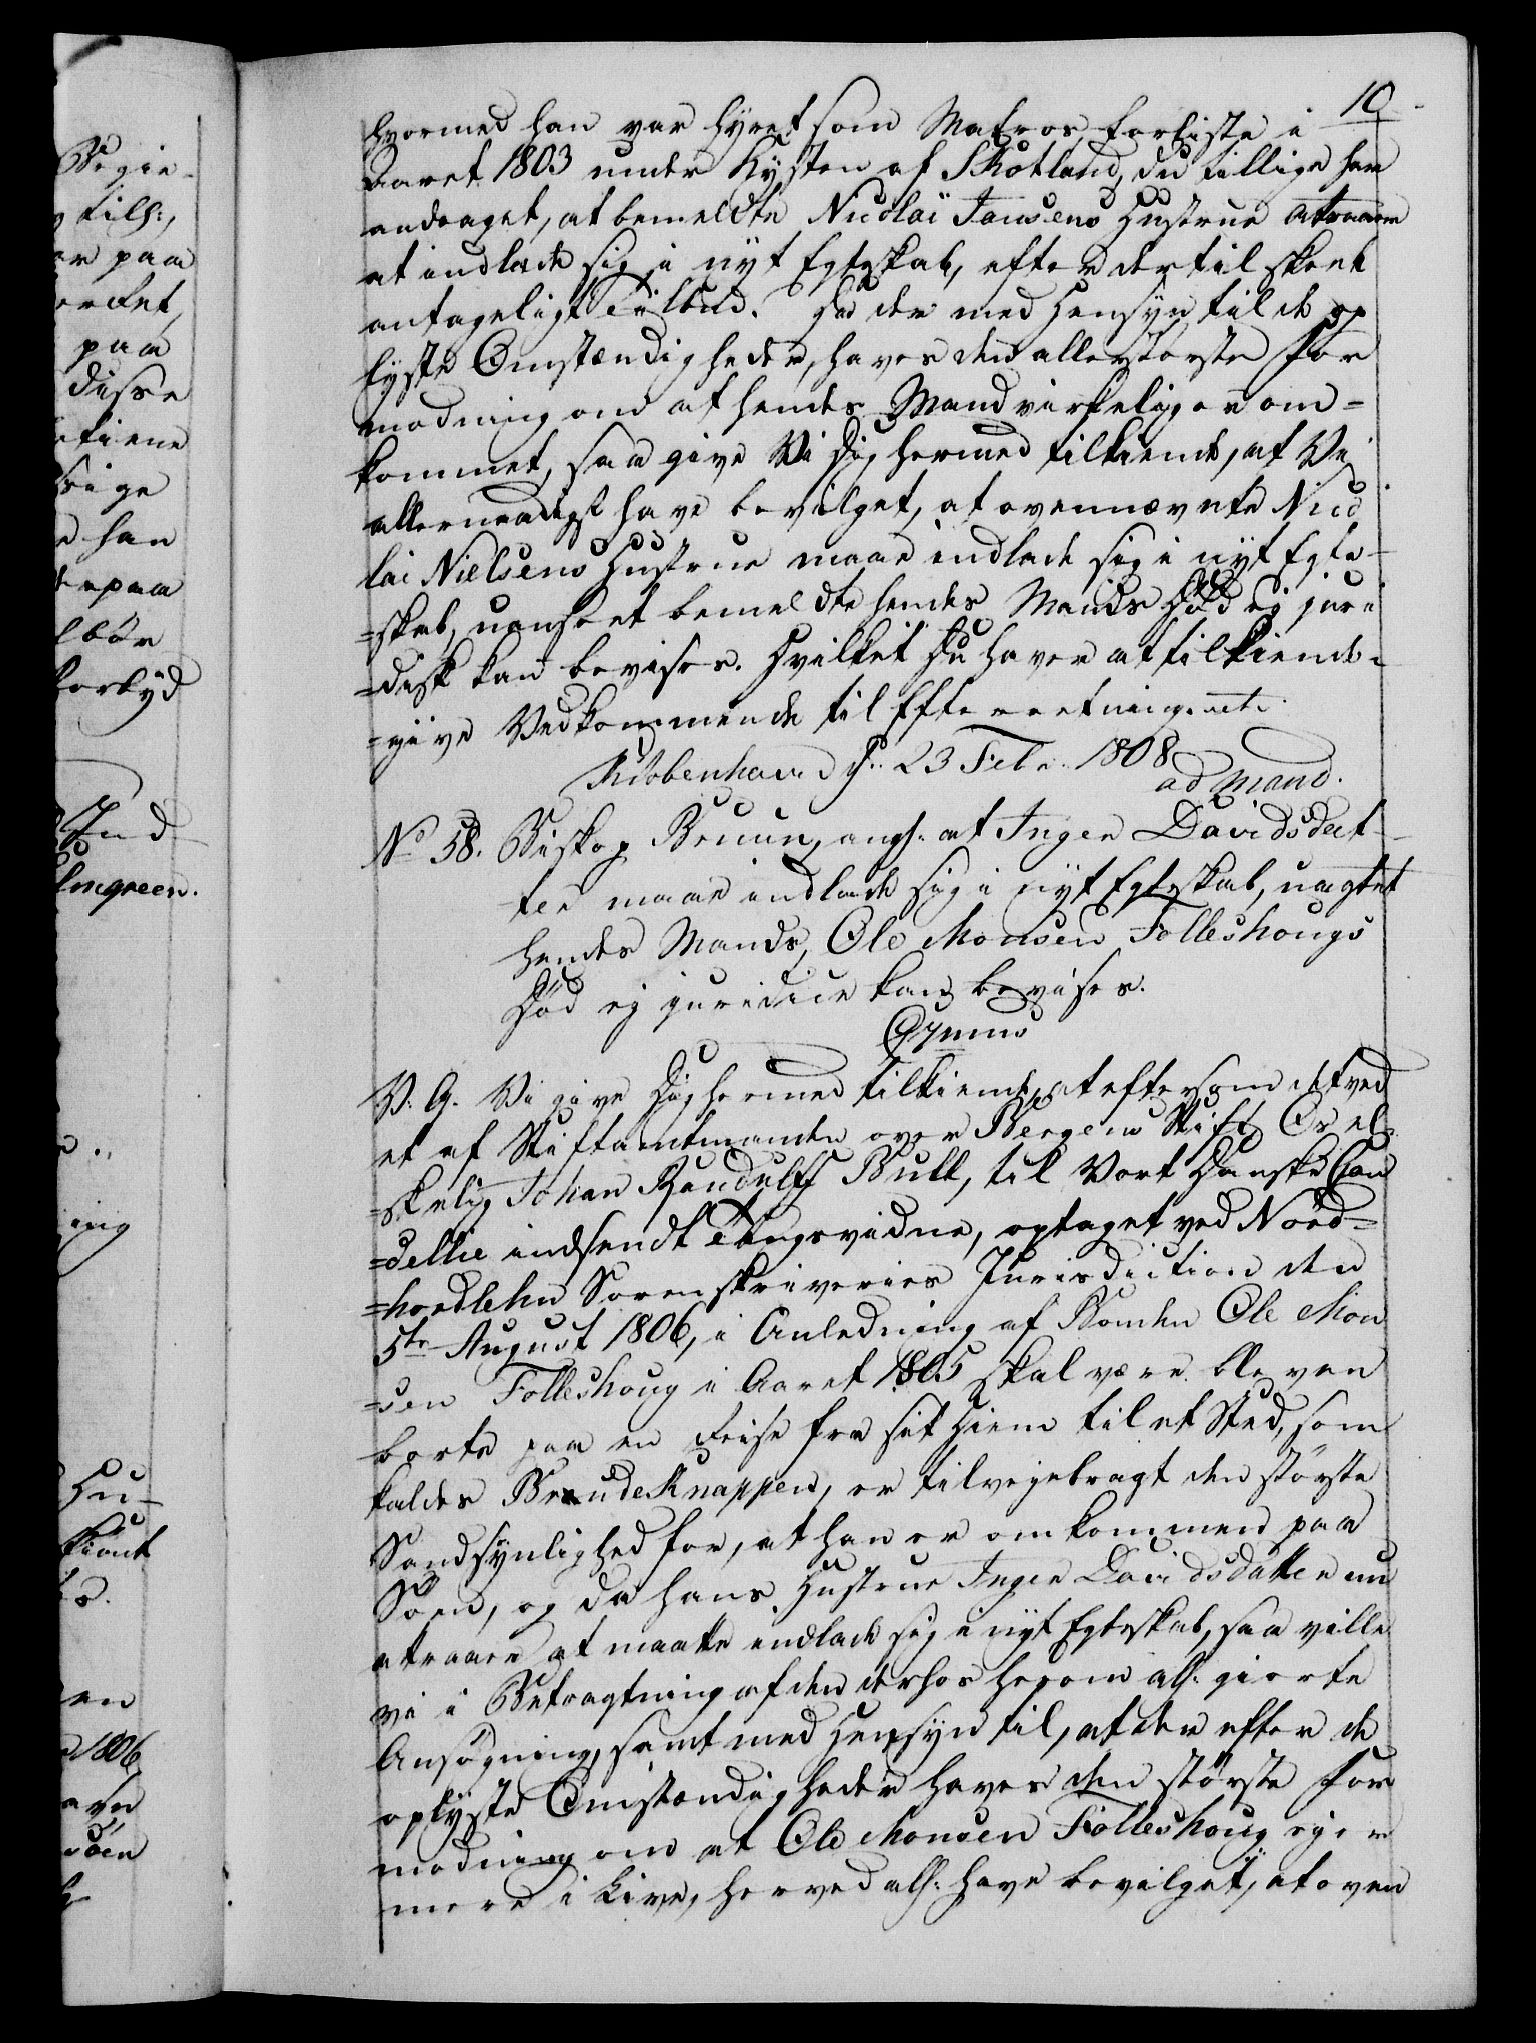 10
hvormed han var hyret som Matros, forliste i
Aaret 1803 under Kysten af Skotland, Du tillige har
andraget, at bemeldte Nicolai Jansens Hustrue attraaer
at indlade sig i nyt Egteskab, efter dertil skeet
antageligt Tilbud. Da der med Hensyn til de op
lyste Omstændigheder, haves den allerstørste For
modning om at hendes Mand virkelig er om=
kommet, saa give Vi Dig hermed tilkiende, at Vi
allernaadigst have bevilget, at ovennævnte Nico
lai Nielsens Hustrue maae indlade sig i nyt Egte-
=skab, uanseet bemeldte hendes Mands Død ej juri
=disk kan bevises. Hvilket Du haver at tilkiende-
=give Vedkommende til Efterretning. etc.
Kiøbenhavn d: 23 Febr. 1808
ad mand.
No 58. Biskop Bruun, angl. at Inger Davidsdat-
ter maae indlade sig i nyt Egteskab, uagtet
hendes Mands, Ole Monsen Folleshougs
Død ej juridice kan bevises.
V. G. Vi give Dig hermed tilkiende, at eftersom det ved
et af Stiftamtmanden over Bergens Stift, Os el-
=skelig Johan Randulff Bull, til Vort Danske Can
=cellie indsendt Tingsvidne, optaget ved Nord=
=hordlehn Sorenskriveries Jurisdiction den
5te August 1806, i Anledning af Bonden Ole Mon
=sen Folleshoug i Aaret 1805 skal være bleven
borte paa en Reise fra sit Hiem til et Sted, som
kaldes BrudeKnappen, er tilvejebragt den største
Sandsynlighed for, at han er omkommen paa
Søen, og da hans Hustrue Inger Davidsdatter nu
attraaer at maatte indlade sig i nyt Egteskab, saa ville
vi i Betragtning af den derhos herom all. giorte
Ansøgning, samt med Hensyn til, at der efter de
oplyste Omstændigheder haves den største For
modning om at Ole Monsen Folleshoug ej er
mere i Live, herved all. have bevilget, at oven